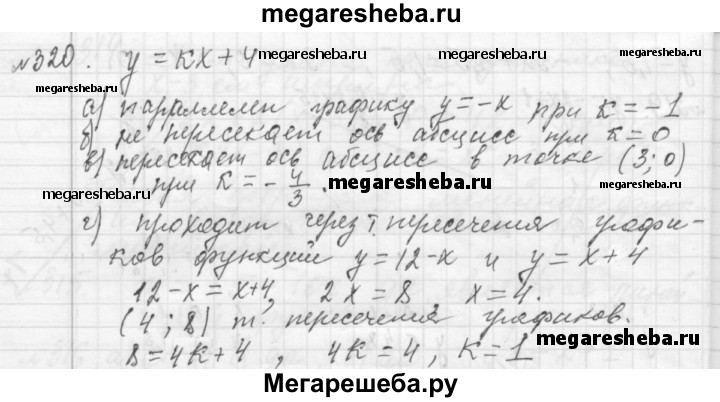 megaresheba.ru
№320. y = kx + 4 megaresheba.ru megaresheba.ru
megaresheba.ru а) параллелен графику y = -x при k = -1
б) не пересекает ось абсцисс при k = 0
в) пересекает ось абсцисс в точке (3; 0)
при k = -4/3. megaresheba.ru megaresheba.ru megaresheba.ru
г) проходит через т. пересечения графи-
ков функций y = 12-x и y = x + 4
12-x = x+4, 2x = 8, x = 4.
(4; 8) т. пересечения графиков.
megaresheba.ru megaresheba.ru
8 = 4k + 4, 4k = 4, k = 1
Мегарешеба.ру